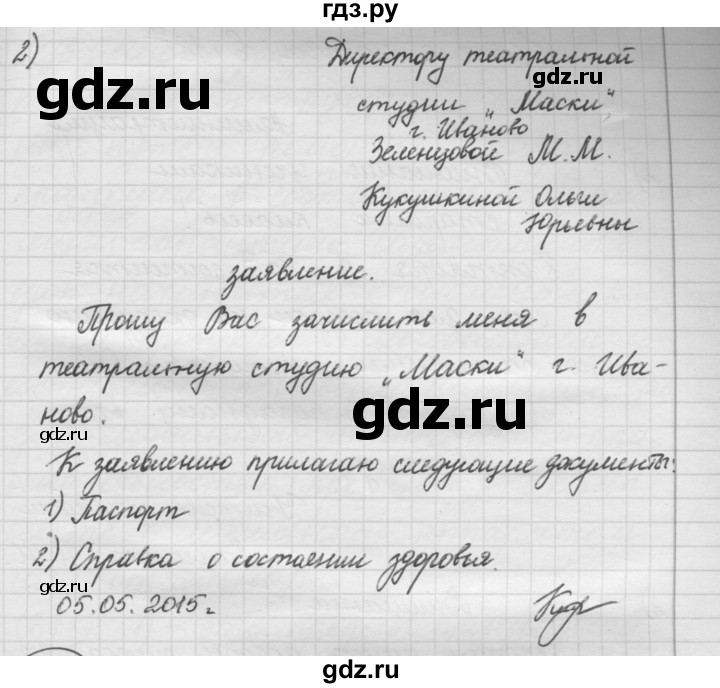 гдз.ру
2)
Директору театральной
студии „Маски“,
г. Иваново
Зеленцовой М.М.
Кукушкиной Ольги
Юрьевны
заявление.
Прошу Вас зачислить меня в
театральную студию „Маски“ г. Ива-
ново.
К заявлению прилагаю следующие документы:
1) Паспорт
2) Справка о состоянии здоровья.
05.05.2015г.
gdz.ru
gdz.ru
gdz.ru
gdz.ru
gdz.ru
gdz.ru
gdz.ru